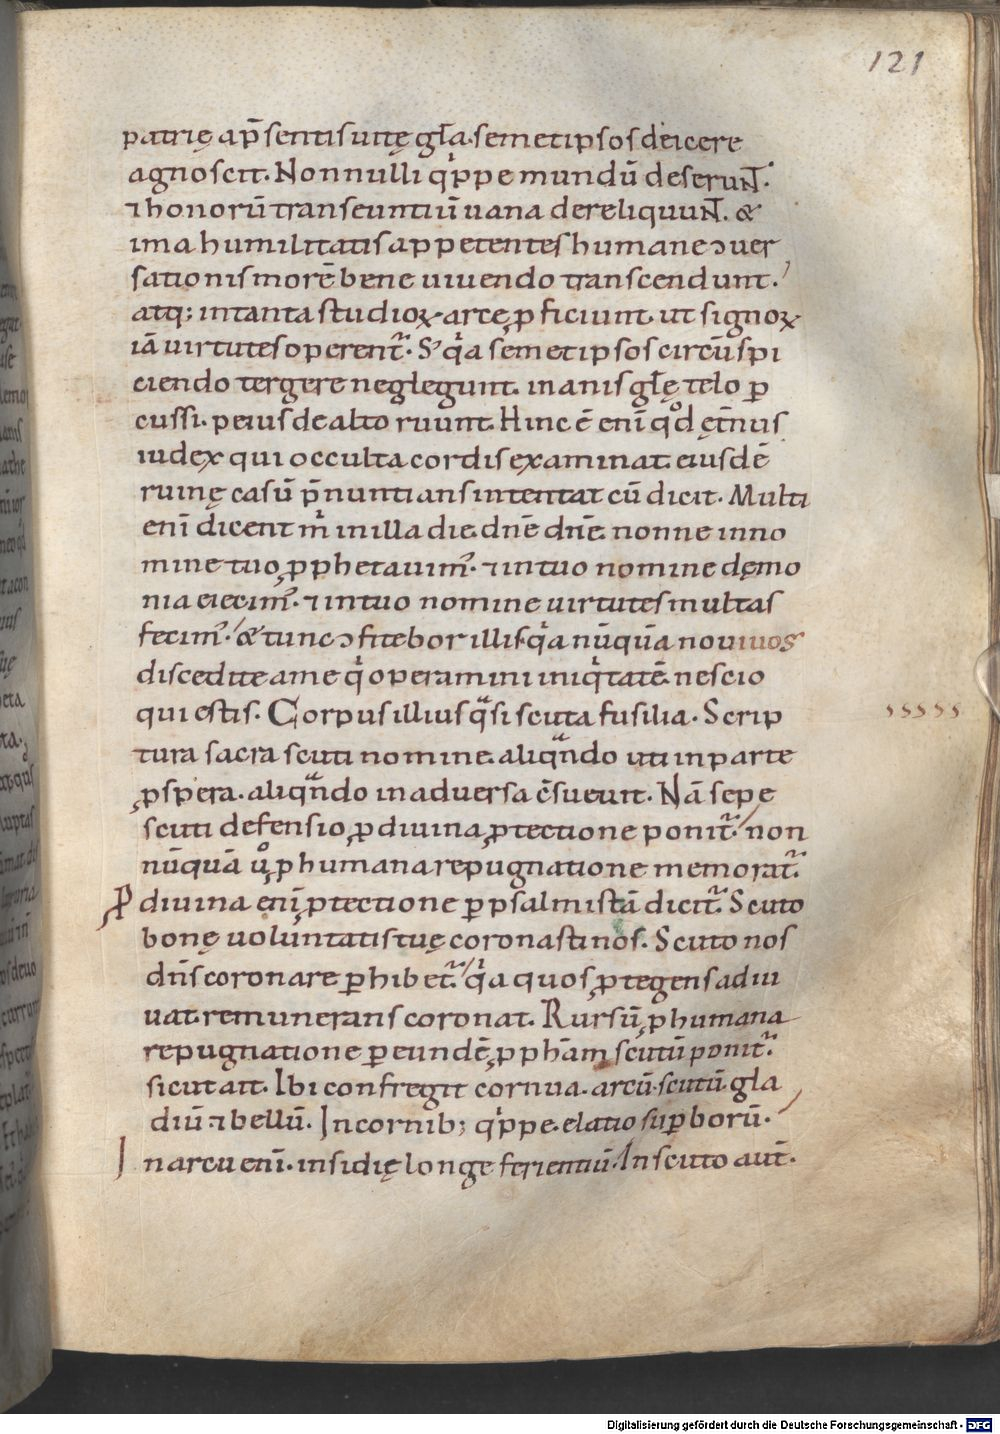 121
patrię ap̄sentisuitę gła·semetipsosdeicere
agnoscit. Nonnulli q̍ppe mundū deseruNT.
⁊honorū transeuntiū uana dereliquuNT. &
ima humilitatis appetentes humane ɔuer
sationis morē bene uiuendo transcendunt.
atq; intanta studioꝝ arce ꝑficiunt. ut signoꝝ
iā uirtutes operent᷑. S; q̍a semetipsos circūspi
ciendo tergere neglegunt. inanis głę telo ꝑ
cussi. peius dealto ruunt. Hinc ē enī qđ ęt̄nus
iudex qui occulta cordis examinat. eiusdē
ruinę casū p̄nuntians intentat cū dicit. Multi
enī dicent m̍ inilla die. dn̄e dn̄e. nonne inno
mine tuo ꝓphetauim᷒. ⁊intuo nomine dęmo
nia eiecim᷒. ⁊intuo nomine uirtutes multas
fecim᷒. & tunc ɔfitebor illis q̍a nūquā noui uos
discedite ame q̍ operamini iniq̍tatē. nescio
qui estis. Corpus illius qᵃsi scuta fusilia. Scrip
tura sacra scuti nomine. aliqᵃndo uti inparte
ꝓspera. aliqᵃndo inaduersa c̄sueuit. Nā sepe
scuti defensio ꝓ diuina ꝓtectione ponit᷑. non
nūquā ů ꝓ humana repugnatione memorat᷑.
Ꝓ diuina enī ꝓtectione ꝑ psalmistā dicit᷑. Scuto
bonę uoluntatis tuę coronasti nos. Scuto nos
dn̄s coronare ꝑhibet᷑. q̍a quos ꝓtegens adiu
uat. remunerans coronat. Rursū ꝓ humana
repugnatione ꝑ eundē ꝓpham̄ scutū ponit᷑.
sicut ait. Ibi confregit cornua. arcū. scutū. gla
diū. ⁊bellū. Incornib; q̍ppe. elatio suꝑborū.
In arcu enī. insidię longe ferientiū. Inscuto aut̄.
Digitalisierung gefördert durch die Deutsche Forschungsgemeinschaft - DFG